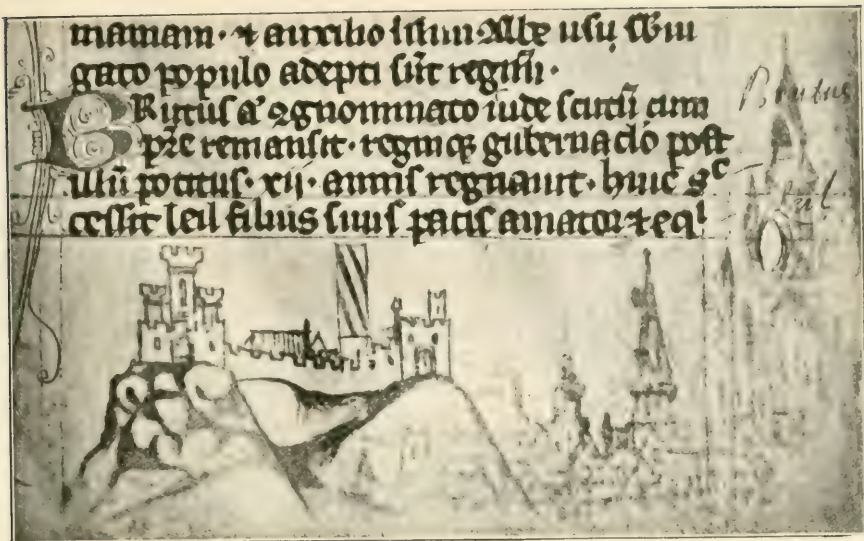 maniam · ⁊ auxilio siluii Albe usi sb iu
gato populo adepti sūt regnū ·
Brutus a' ꝯgnominato uide scutū cum
pr̄e remansit · regniqꝫ gubernaclo post
illū potitus · xii · annis regnauit · huic sᶜ
cessit leil filius suus pacis amator ⁊ eqⁱ
Brutus